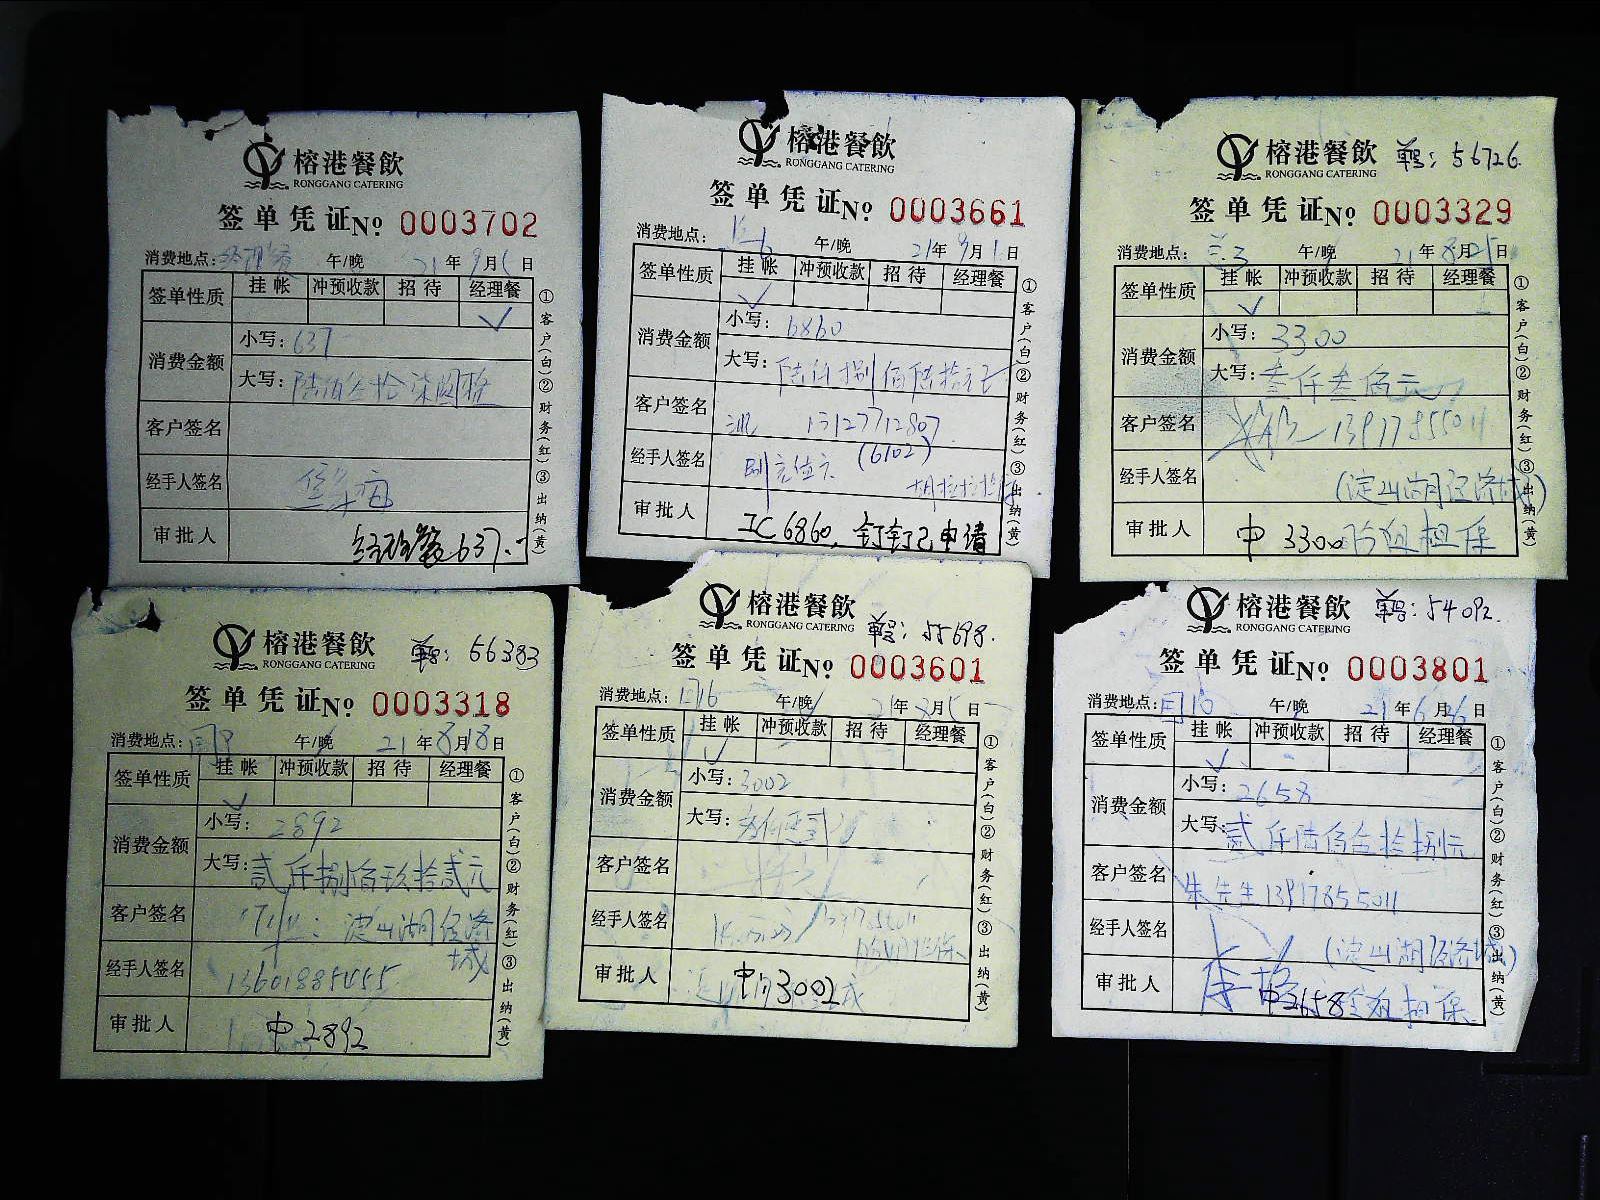 榕港餐飲
RONGGANG CATERING
签单凭证 No 0003702
消费地点: 午/晚 21年9月5日
签单性质 挂帐 冲预收款 招待 经理餐
✓
消费金额 小写: 637
大写: 陆佰叁拾柒圆整
客户签名
经手人签名
审批人 经理餐637.-
①客户(白)②财务(红)③出纳(黄)
榕港餐飲
RONGGANG CATERING
签单凭证 No 0003661
消费地点: 午/晚 21年9月1日
签单性质 挂帐 冲预收款 招待 经理餐
✓
消费金额 小写: 6860
大写: 陆仟捌佰陆拾元正
客户签名 13127712807
经手人签名 (6102)
审批人 IC 6860, 钉钉已申请
①客户(白)②财务(红)③出纳(黄)
榕港餐飲 单号: 56726.
RONGGANG CATERING
签单凭证 No 0003329
消费地点: 兰3 午/晚 21年8月21日
签单性质 挂帐 冲预收款 招待 经理餐
✓
消费金额 小写: 3300
大写: 叁仟叁佰元
客户签名 13917855011
经手人签名 (淀山湖经济城)
审批人 中 3300 担保
①客户(白)②财务(红)③出纳(黄)
榕港餐飲 单号: 56383
RONGGANG CATERING
签单凭证 No 0003318
消费地点: 午/晚 21年8月18日
签单性质 挂帐 冲预收款 招待 经理餐
✓
消费金额 小写: 2892
大写: 贰仟捌佰玖拾贰元
客户签名 淀山湖经济城
经手人签名 13601885455
审批人 中 2892
①客户(白)②财务(红)③出纳(黄)
榕港餐飲 单号: 55698.
RONGGANG CATERING
签单凭证 No 0003601
消费地点: 午/晚 21年8月5日
签单性质 挂帐 冲预收款 招待 经理餐
✓
消费金额 小写: 3002
大写: 叁仟零贰
客户签名
经手人签名 13917855011
审批人 中 3002
①客户(白)②财务(红)③出纳(黄)
榕港餐飲 单号: 54092.
RONGGANG CATERING
签单凭证 No 0003801
消费地点: 午/晚 21年6月26日
签单性质 挂帐 冲预收款 招待 经理餐
✓
消费金额 小写: 2658
大写: 贰仟陆佰伍拾捌元
客户签名 朱先生 13917855011
经手人签名 (淀山湖经济城)
审批人 中2658 担保
①客户(白)②财务(红)③出纳(黄)